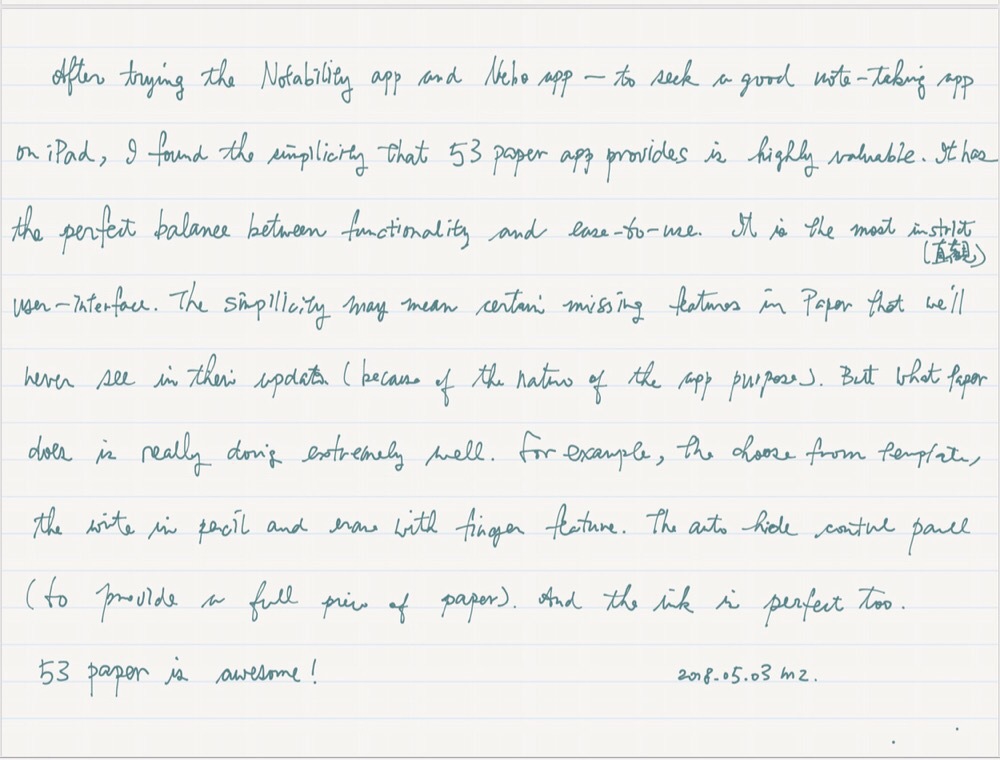 After trying the Notability app and Nebo app – to seek a good note-taking app
on iPad, I found the simplicity that 53 paper app provides is highly valuable. It has
the perfect balance between functionality and ease-to-use. It is the most instrict
(直観)
user-interface. The simplicity may mean certain missing features in Paper that we'll
never see in their update (because of the nature of the app purpose). But what Paper
does is really doing extremely well. For example, the choose from template,
the write in pencil and erase with finger feature. The auto hide control panel
(to provide a full piece of paper). And the ink is perfect too.
53 paper is awesome!
2018.05.03 mz.